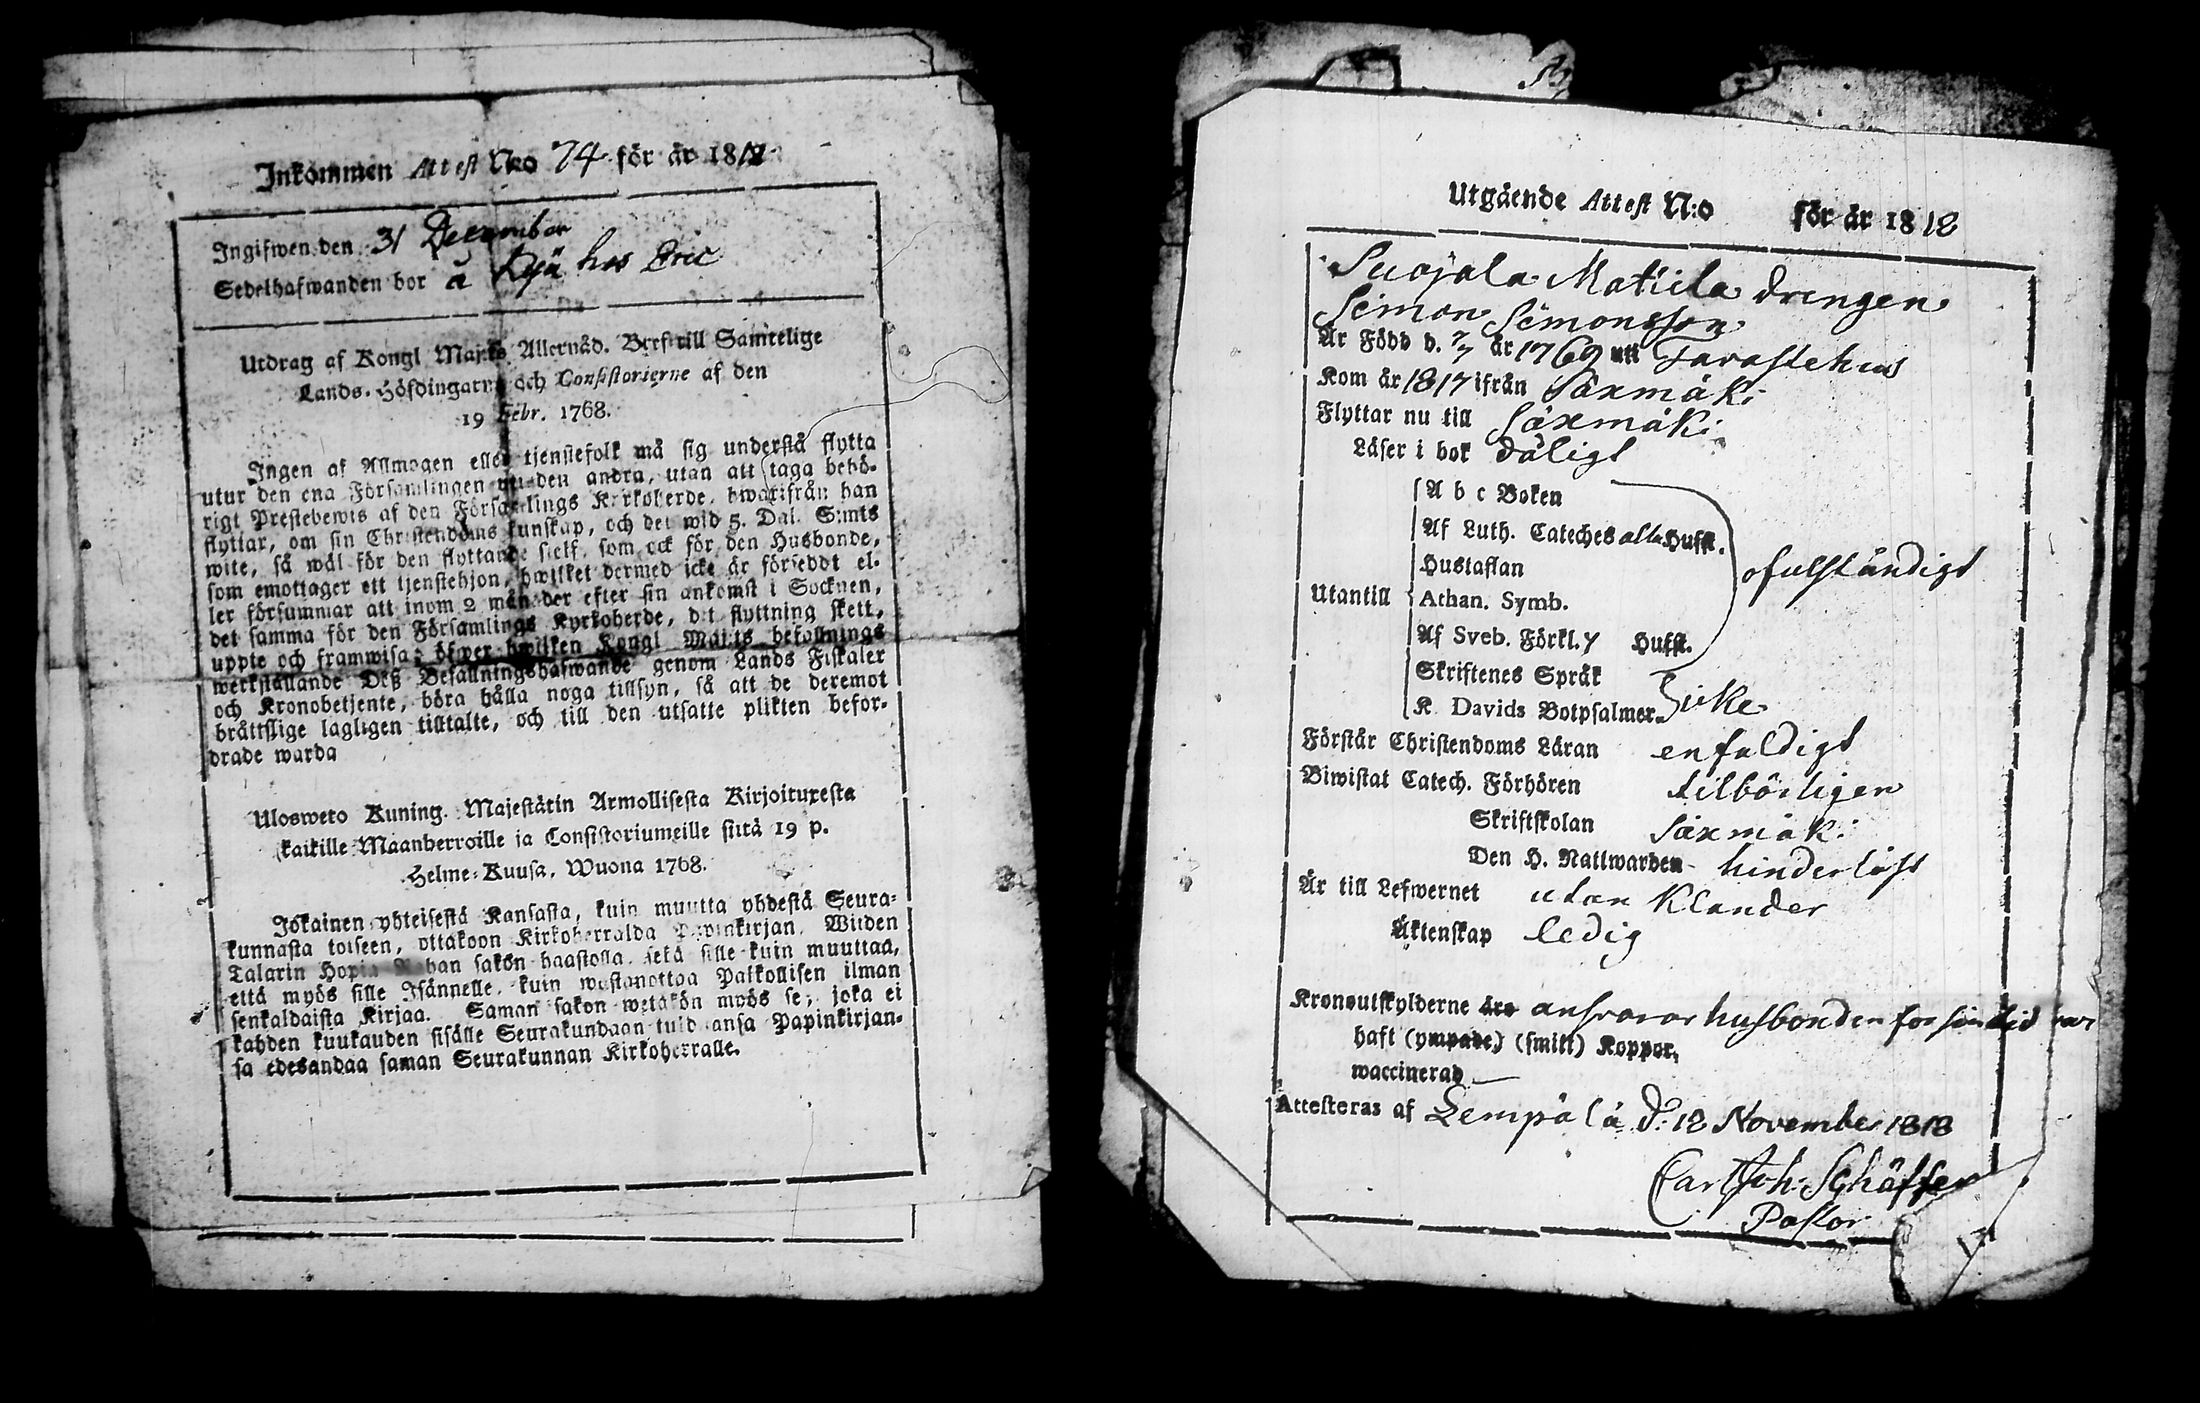 Inkommen Attest N:o 74 för år 1818
Ingifwen den 31 December
Sedelhafwanden bor å Kylä hos Eric
Utdrag af Kongl Maj:ts Allernåd. Bref till Samtelige
Lands-Höfdingarne och Consistorierne af den
19 Febr. 1768.
Ingen af Allmogen eller tjenstefolk må sig understå flytta
utur den ena Församlingen uti den andra, utan att taga behö-
rigt Prestebewis af den Församlings Kyrkoherde, hwarifrån han
flyttar, om sin Christendoms kunskap, och det wid 5. Dal. S:mts
wite, så wäl för den flyttande sielf, som ock för den Husbonde,
som emottager ett tjenstehjon, hwilket dermed icke är förseddt el-
ler försummar att inom 2 månader efter sin ankomst i Socknen,
det samma för den Församlings Kyrkoherde, dit flyttning skett,
uppte och framwisa; öfwer hwilken Kongl Maj:ts befallnings
werkställande Deß Befallningshafwande genom Lands Fiskaler
och Kronobetjente, böra hålla noga tillsyn, så att de deremot
bråttslige lagligen tilltalte, och till den utsatte plikten befor-
drade warda
Ulosweto Kuning. Majestätin Armollisesta Kirjoituxesta
kaikille Maanherroille ja Consistoriumeille siitä 19 p.
Helme-Kuusa, Wuona 1768.
Jokainen yhteisestä Kansasta, kuin muutta yhdestä Seura-
kunnasta toiseen, ottakoon Kirkoherralda Papinkirjan, Wiiden
Talarin Hopia Rahan sakon haastolla, sekä sille kuin muuttaa,
että myös sille Isännelle, kuin wastanottaa Palkollisen ilman
senkaldaista Kirjaa. Saman sakon wetäkön myös se, joka ei
kahden kuukauden sisälle Seurakundaan tuldansa Papinkirjan-
sa edesandaa saman Seurakunnan Kirkoherralle.
Utgående Attest N:o för år 1818
Suojala Matiela drengen
Simon Simonsson
Är Född d. 7/7 år 1769 uti Tavastehus
Kom år 1817 ifrån Säxmäki
Flyttar nu till Säxmäki
Läser i bok dåligt
A b c Boken
Af Luth. Cateches alla Hufst.
Hustaflan ofulständigt
Utantill Athan. Symb.
Af Sveb. Förkl. 7 Hufst.
Skriftenes Språk
K Davids Botpsalmer icke
Förstår Christendoms Läran enfaldigt
Biwistat Catech. Förhören tilbörligen
Skriftskolan Säxmäki
Den H. Nattwarden hinderlöst
Är till Lefwernet utan Klander
Äktenskap ledig
Kronoutskylderne äro ansvarar husbonden för sin tid
haft (ympade) (smitt) Koppor,
waccinerad
Attesteras af Lempälä d. 12 November 1818
Carl Joh. Schäffer
Pastor